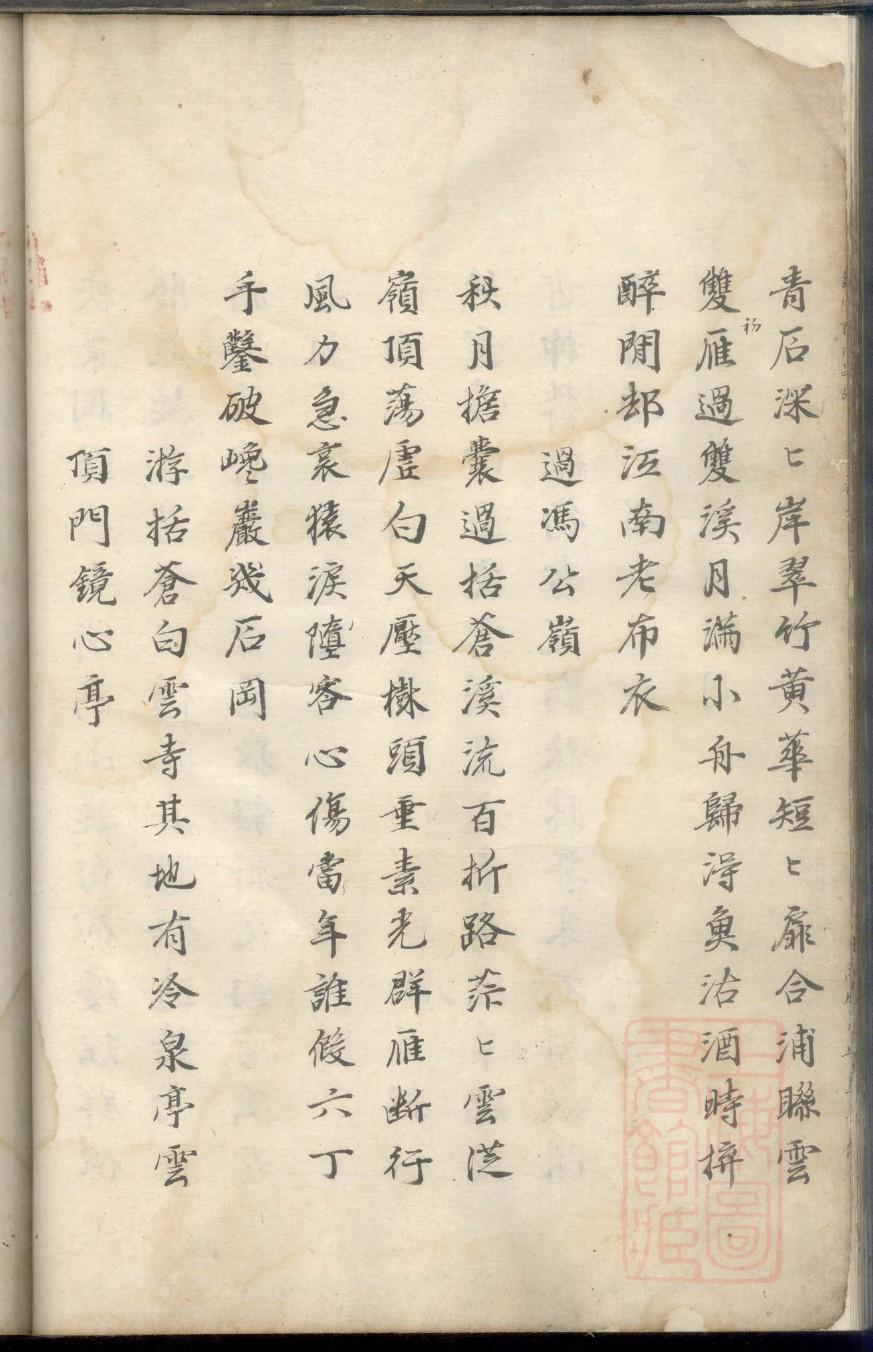 青石深〻岸翠竹黄華短〻扉合浦聯雲
雙雁初過雙溪月滿小舟歸得魚沽酒時拚
醉閒却江南老布衣
過馮公嶺
秋月擔囊過括蒼溪流百折路茫〻雲從
嶺頂蕩虛白天壓樹頭垂素光群雁断行
風力急哀猿淚墮客心傷當年誰假六丁
手鑿破巉巖幾石岡
游括蒼白雲寺其地有冷泉亭雲
頂門鏡心亭